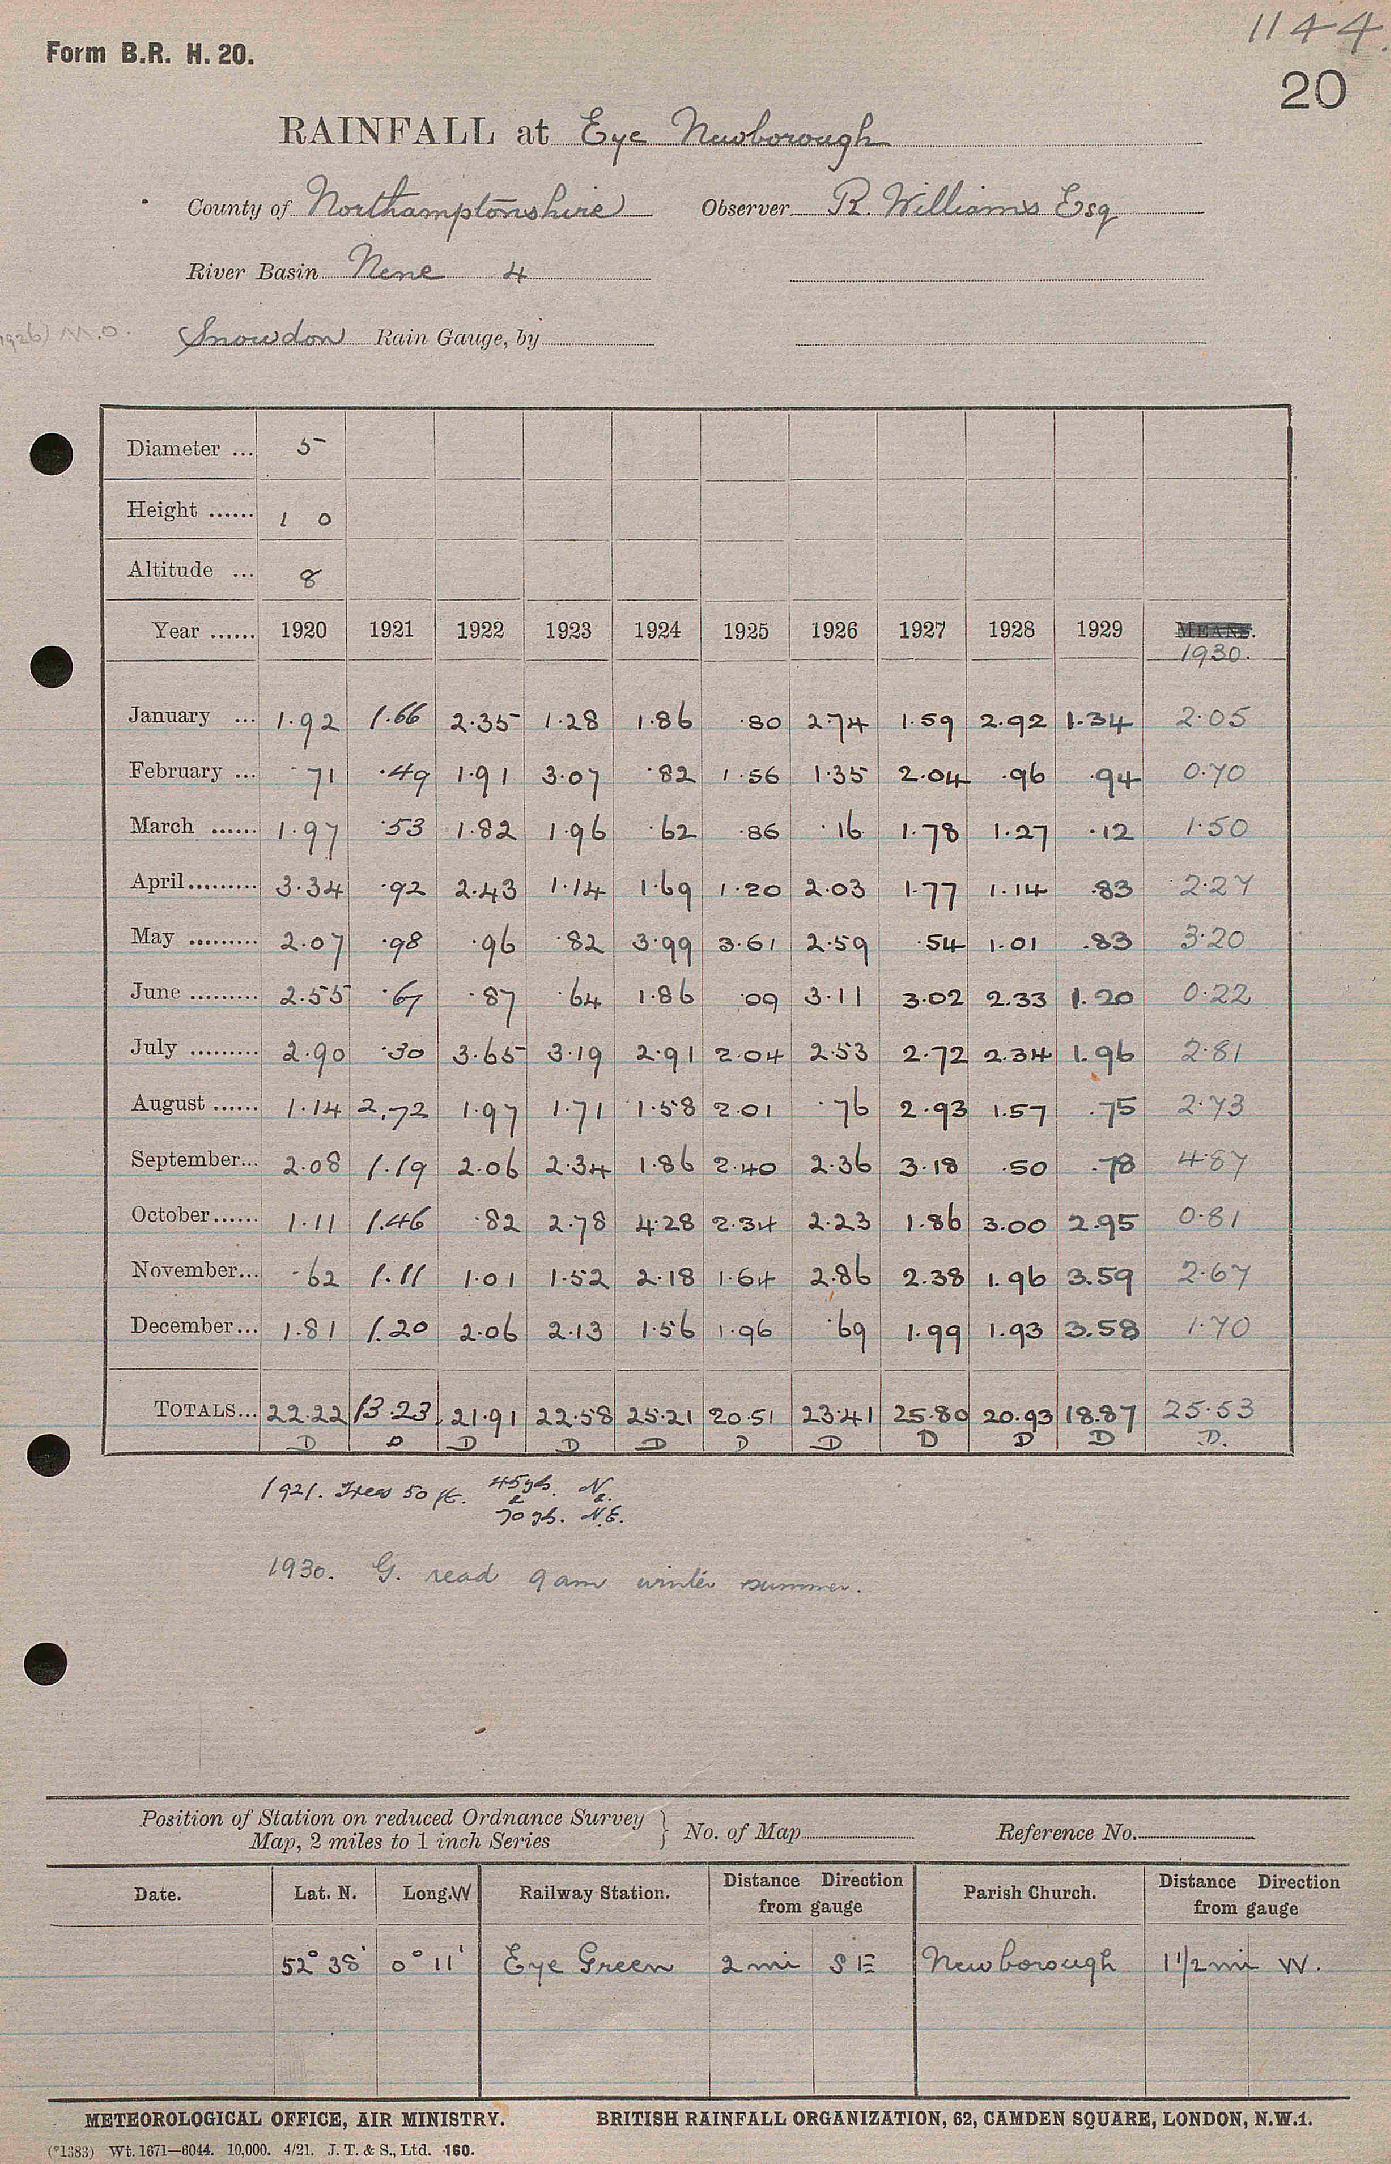 1144.
Form B.R. H. 20.
20
RAINFALL at Eye Newborough
County of Northamptonshire Observer R. Williams Esq
River Basin Nene 4
1926) M.O. Snowdon Rain Gauge, by
Diameter ... 5
Height ...... 1 0
Altitude ... 8
Year ...... 1920 1921 1922 1923 1924 1925 1926 1927 1928 1929 MEANS.
1930.
January ... 1.92 1.66 2.35 1.28 1.86 .80 2.74 1.59 2.92 1.34 2.05
February ... .71 .49 1.91 3.07 .82 1.56 1.35 2.04 .96 .94 0.70
March ...... 1.97 .53 1.82 1.96 .62 .86 .16 1.78 1.27 .12 1.50
April......... 3.34 .92 2.43 1.14 1.69 1.20 2.03 1.77 1.14 .83 2.27
May ......... 2.07 .98 .96 .82 3.99 3.61 2.59 .54 1.01 .83 3.20
June ......... 2.55 .67 .87 .64 1.86 .09 3.11 3.02 2.33 1.20 0.22
July ......... 2.90 .30 3.65 3.19 2.91 2.04 2.53 2.72 2.34 1.96 2.81
August ...... 1.14 2.72 1.97 1.71 1.58 2.01 .76 2.93 1.57 .75 2.73
September... 2.08 1.19 2.06 2.34 1.86 2.40 2.36 3.18 .50 .78 4.87
October...... 1.11 1.46 .82 2.78 4.28 2.34 2.23 1.86 3.00 2.95 0.81
November... .62 1.11 1.01 1.52 2.18 1.64 2.86 2.38 1.96 3.59 2.67
December... 1.81 1.20 2.06 2.13 1.56 1.96 .69 1.99 1.93 3.58 1.70
TOTALS... 22.22 13.23 21.91 22.58 25.21 20.51 23.41 25.80 20.93 18.87 25.53
D D D D D D D D D D D.
1921. Trees 50 ft. 45 yds. N.
& &
70 yds. N.E.
1930. G. read 9am winter summer.
Position of Station on reduced Ordnance Survey
Map, 2 miles to 1 inch Series } No. of Map Reference No.
Date. Lat. N. Long. W Railway Station. Distance Direction from gauge Parish Church. Distance Direction from gauge
52° 38' 0° 11' Eye Green 2 mi SE Newborough 1 1/2 mi W.
METEOROLOGICAL OFFICE, AIR MINISTRY. BRITISH RAINFALL ORGANIZATION, 62, CAMDEN SQUARE, LONDON, N.W.1.
(*1383) Wt. 1671—6044. 10,000. 4/21. J. T. & S., Ltd. 160.